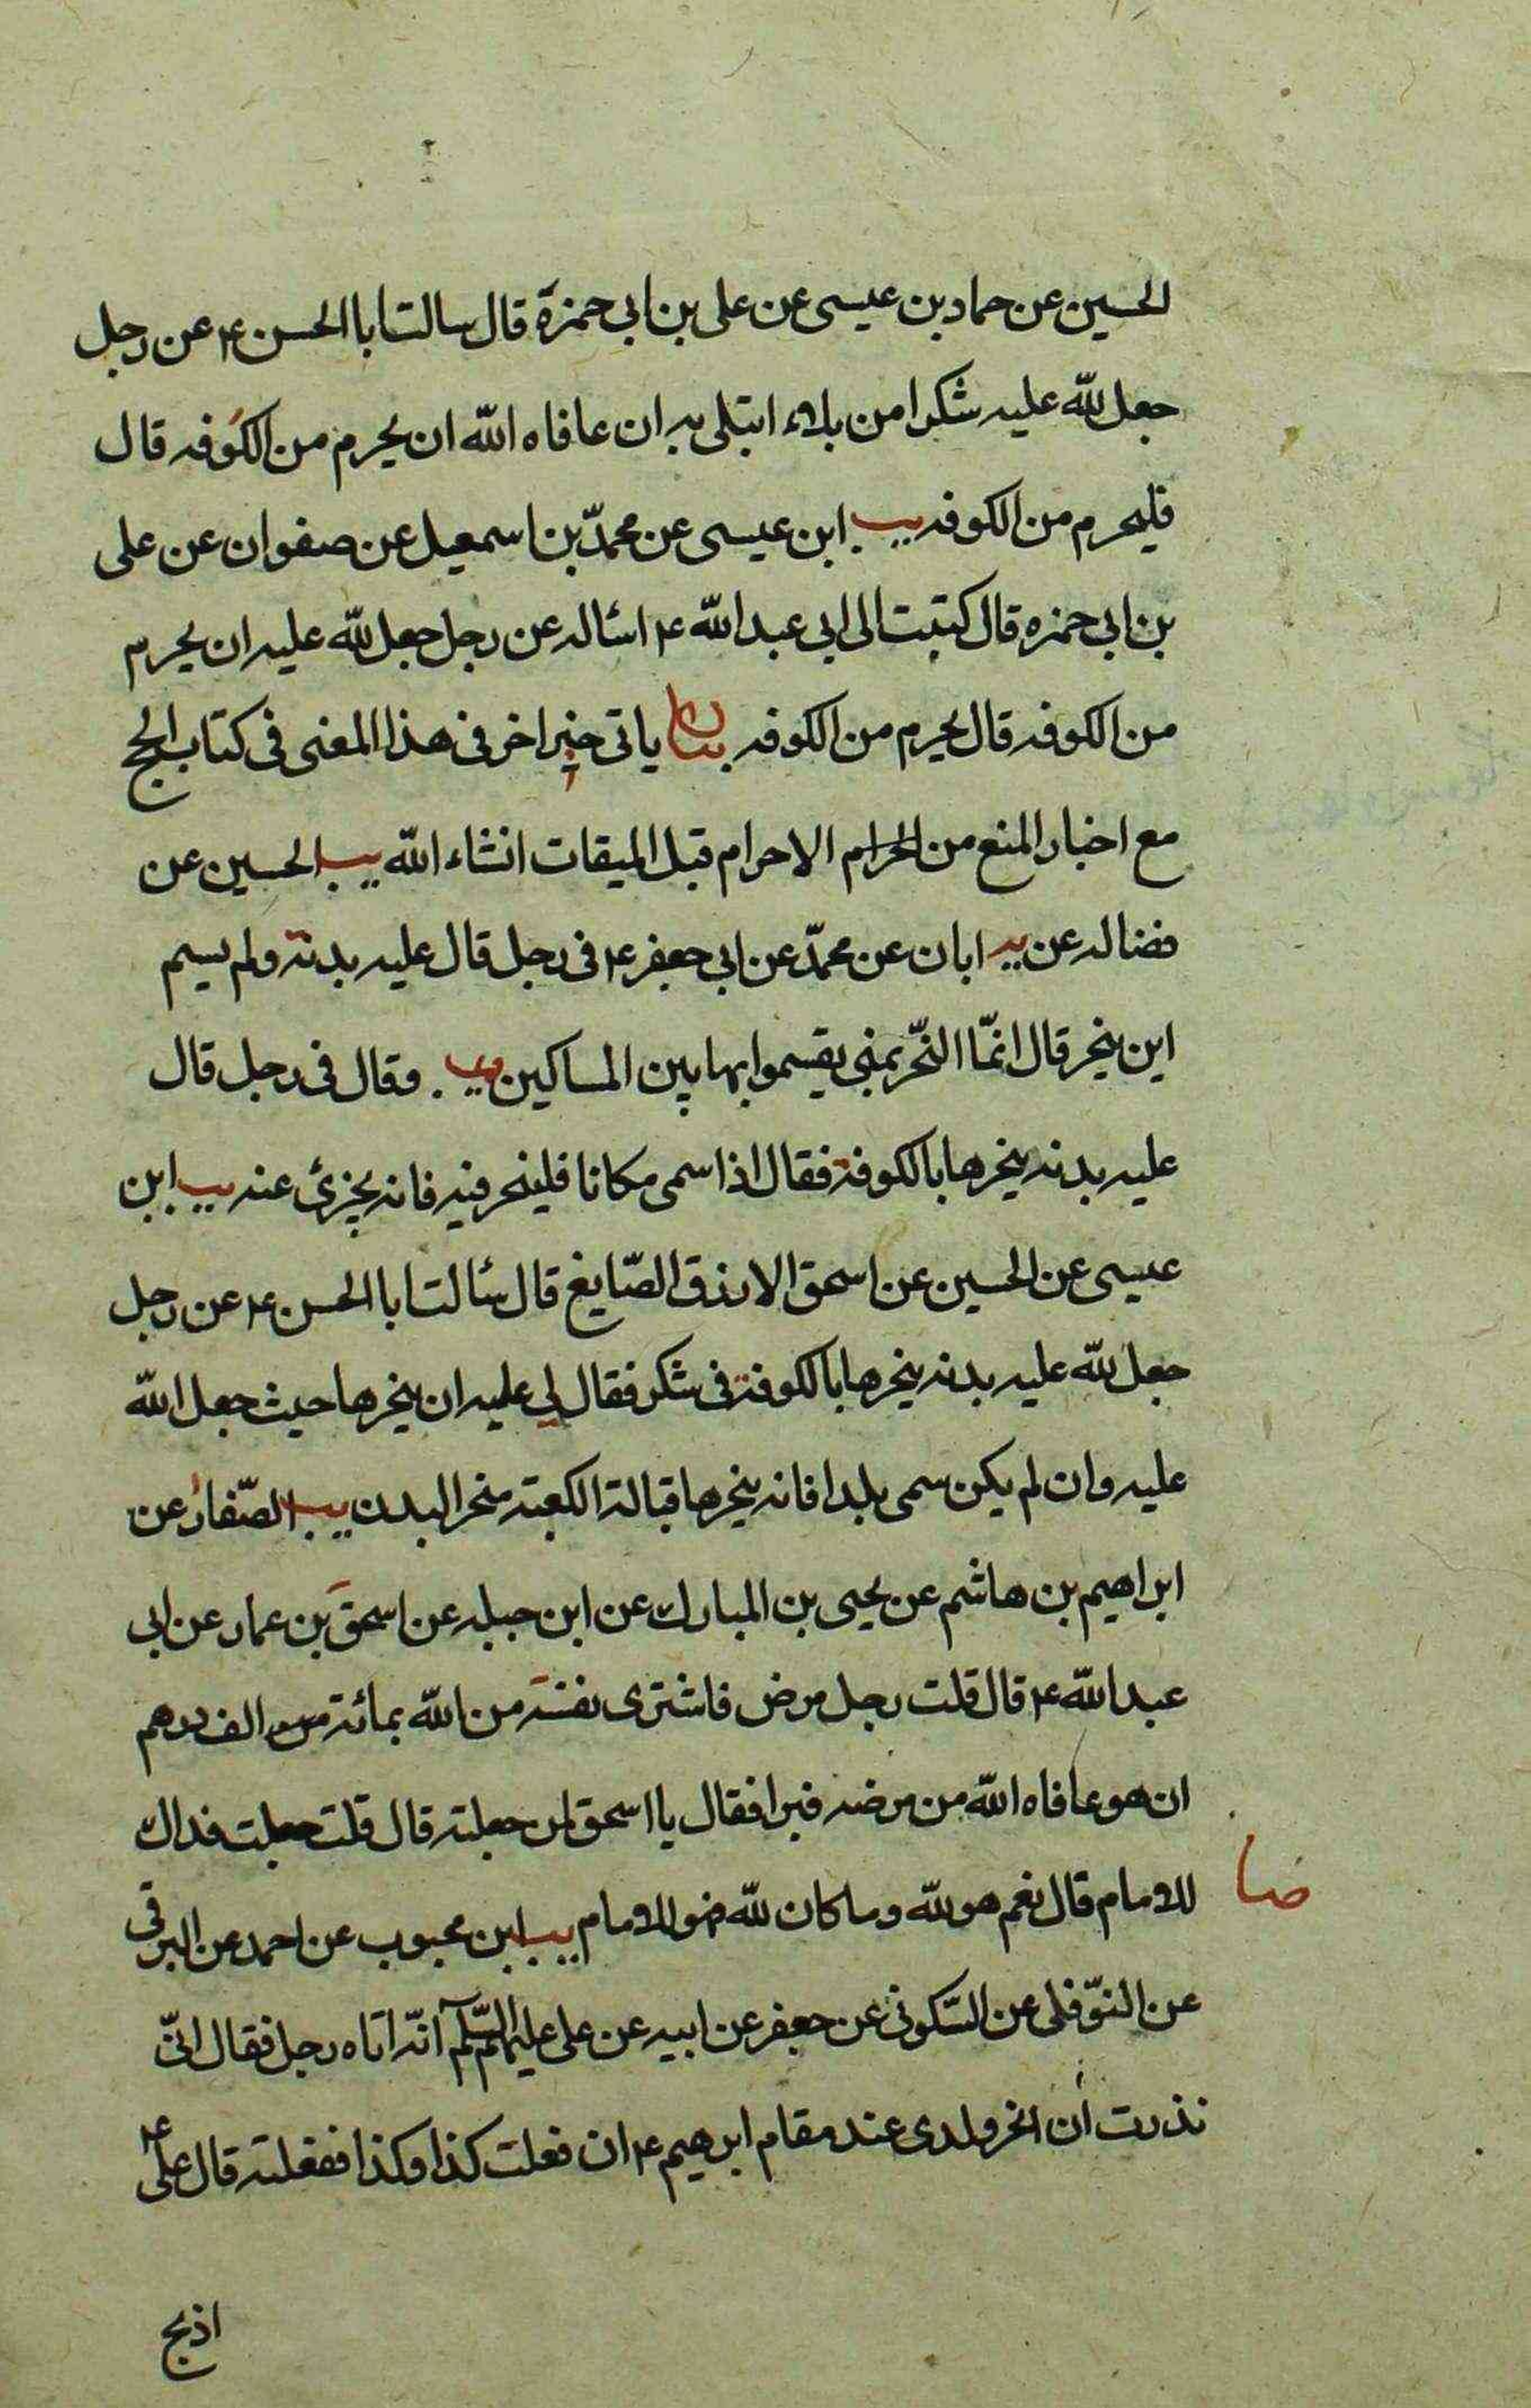 الحسین عن حماد بن عیسی عن علی بن ابی حمزة قال سالت ابا الحسن ع عن رجل
جعل لله علیه شکرا من بلاء ابتلی به ان عافاه الله ان یحرم من الکوفه قال
فلیحرم من الکوفه یب ابن عیسی عن محمّد بن اسمعیل عن صفوان عن علی
بن ابی حمزه قال کتبت الی ابی عبد الله ع اسئاله عن رجل جعل لله علیه ان یحرم
من الکوفه قال یحرم من الکوفه بیان یاتی خبر اخر فی هذا المعنی فی کتاب الحج
مع اخبار المنع من الحرام الاحرام قبل المیقات انشاء الله یب الحسین عن
فضاله عن یه ابان عن محمّد عن ابی جعفر ع فی رجل قال علیه بدنة ولم یسم
این ینحر قال انّما النّحر بمنی یقسموا بها بین المساکین ویب . وقال فی رجل قال
علیه بدنه ینحرها بالکوفة فقال اذا سمی مکانا فلینحر فیه فانه یجزئ عنه یب ابن
عیسی عن الحسین عن اسحق الازرق الصّایغ قال سئالت ابا الحسن ع عن رجل
جعل لله علیه بدنه ینحرها بالکوفة فی شکر فقال لی علیه ان ینحرها حیث جعل الله
علیه وان لم یکن سمی بلدا فانه ینحرها قبالة الکعبة منحر البدن یب الصّفار عن
ابراهیم بن هاشم عن یحیی بن المبارک عن ابن جبله عن اسحق بن عمار عن ابی
عبد الله ع قال قلت رجل مرض فاشتری نفسه من الله بمائة الف درهم
ان هو عافاه الله من مرضه فبرا فقال یا اسحق لمن جعلته قال قلت جعلت فداک
للامام قال نعم هو لله وما کان لله فهو للامام یب ابن محبوب عن احمد عن البرقی
ضا
عن النّوفلی عن السّکونی عن جعفر عن ابیه عن علی علیهم السّلم انّه اتاه رجل فقال انّی
نذرت ان انحر ولدی عند مقام ابرهیم ع ان فعلت کذا وکذا ففعلته قال علی ع
اذبح